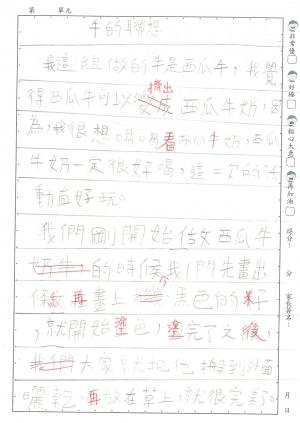 第 單元
牛的聯想
我這組做的牛是西瓜牛,我覺
得西瓜牛可以擠出西瓜牛奶,因
為,我很想喝喝看西瓜牛奶,西瓜
牛奶一定很好喝,這一次的活
動真好玩。
我們剛開始做西瓜牛
的時候我們先畫出
條紋再畫上黑色的籽
,就開始塗色,塗完了之後,
大家就把它搬到外面
曬乾,再放在草上,就很完美了。
非常優
好棒
粗心大意
再加油
得分: 分
家長簽名:
月 日